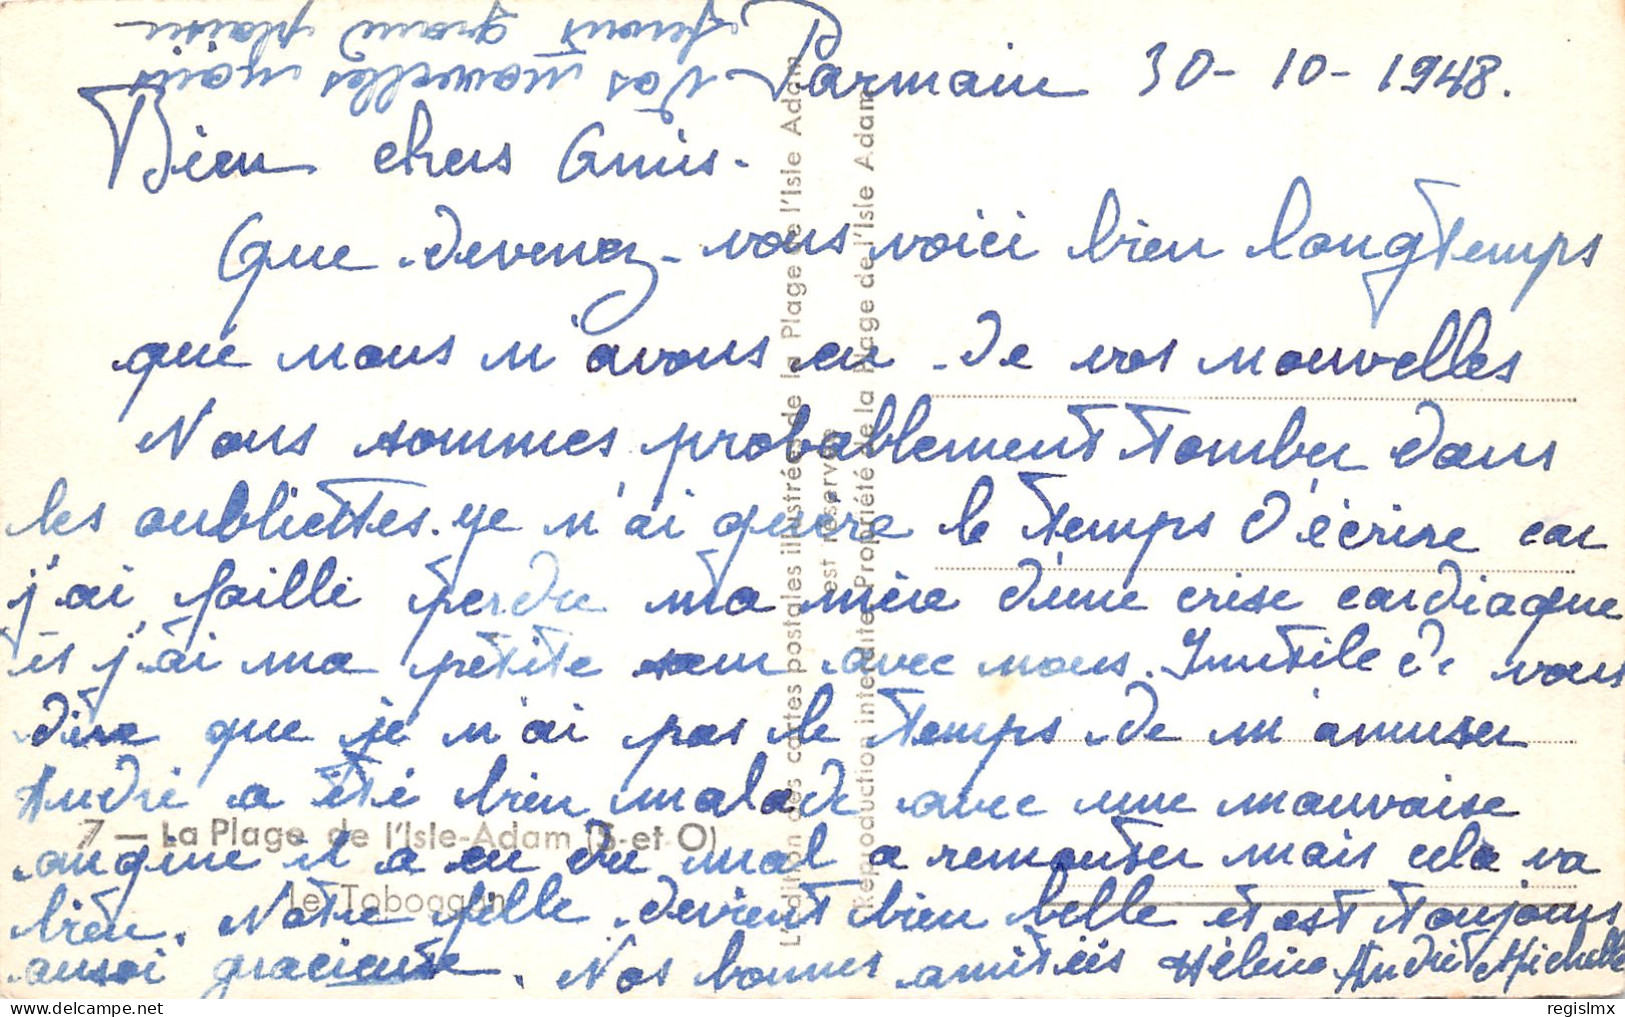 Parmain 30-10-1948.
Bien chers Amis.
Que devenez-vous voici bien longtemps
que nous n'avons eu de vos nouvelles
Nous sommes probablement tomber dans
les oubliettes. Je n'ai guère le temps d'écrire car
j'ai failli perdre ma mère d'une crise cardiaque
et j'ai ma petite sœur avec nous. Inutile de vous
dire que je n'ai pas le temps de m'amuser
André a été bien malade avec une mauvaise
angine il a eu du mal a remonter mais cela va
bien. Notre fille devient bien belle et est toujours
aussi gracieuse. Nos bonnes amitiés Hélène André et Michelle
Vos nouvelles nous
feront grand plaisir
7 — La Plage de l'Isle-Adam (S-et O)
le Toboggan
L'édition des cartes postales illustrées de la Plage de l'Isle Adam
est réservée
Reproduction interdite Propriété de la Plage de l'Isle Adam
regislmx